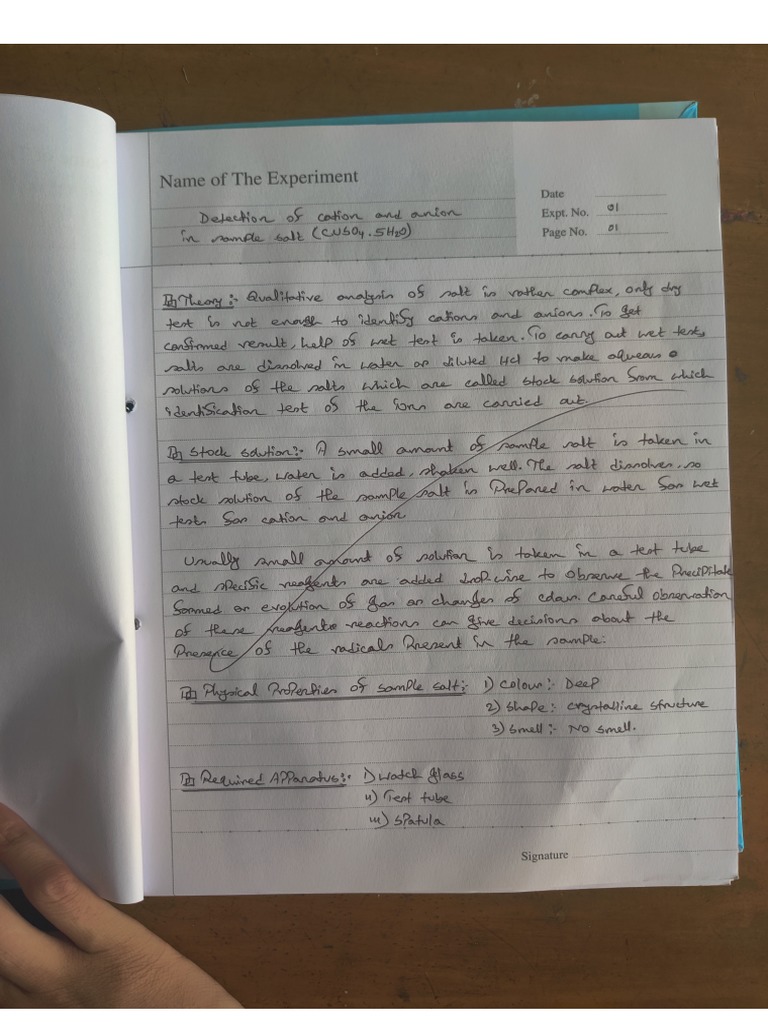 Name of The Experiment
Detection of cation and anion
in sample salt (CuSO4.5H2O)
Date
Expt. No. 01
Page No. 01
Theory:- Qualitative analysis of salt is rather complex, only dry
test is not enough to identify cations and anions. To get
confirmed result, help of wet test is taken. To carry out wet tests,
salts are dissolved in water or diluted HCl to make aqueous
solutions of the salts which are called stock solution from which
identification test of the ions are carried out.
Stock solution:- A small amount of sample salt is taken in
a test tube, water is added, shaken well. The salt dissolves, so
stock solution of the sample salt is Prepared in water for wet
tests for cation and anion
Usually small amount of solution is taken in a test tube
and specific reagents are added drop wise to observe the Precipitate
formed or evolution of gas or changes of colour. Careful observation
of these reagents reactions can give decisions about the
Presence of the radicals Present in the sample.
Physical Properties of sample salt:- 1) Colour:- Deep
2) Shape:- crystalline structure
3) Smell:- No smell.
Required Apparatus:- i) Watch glass
ii) Test tube
iii) Spatula
Signature